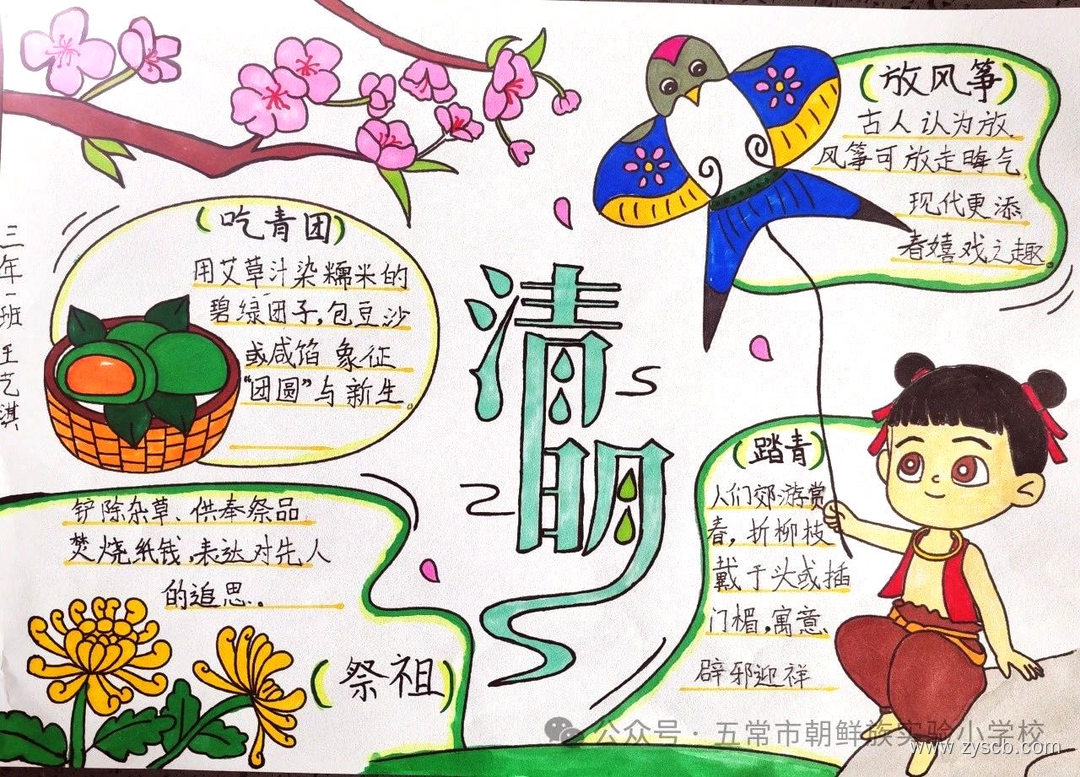 三年一班 王艺淇
(吃青团)
用艾草汁染糯米的
碧绿团子,包豆沙
或咸馅 象征
“团圆”与新生。
清明
(放风筝)
古人认为放
风筝可放走晦气,
现代更添
春嬉戏之趣。
(踏青)
人们郊游赏
春,折柳枝
戴于头或插
门楣,寓意
辟邪迎祥
铲除杂草、供奉祭品
焚烧纸钱,表达对先人
的追思。
(祭祖)
公众号·五常市朝鲜族实验小学校
www.zyscb.com